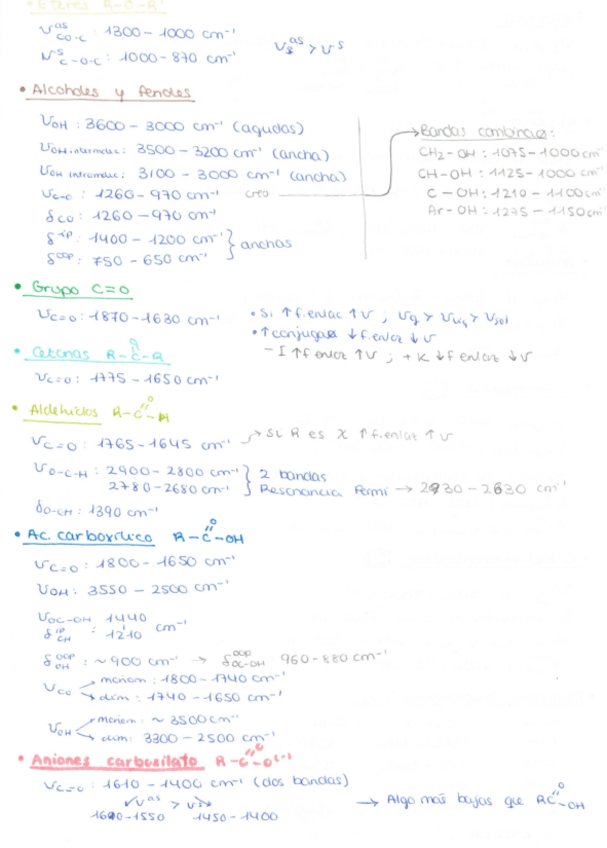 • Éteres R-O-R'
ν as C-O-C : 1300 - 1000 cm⁻¹
ν s C-O-C : 1000 - 870 cm⁻¹
ν as > ν s
• Alcoholes y fenoles
νOH : 3600 - 3000 cm⁻¹ (agudas)
νOH intermolec : 3500 - 3200 cm⁻¹ (ancha)
νOH intramolec : 3100 - 3000 cm⁻¹ (ancha)
νC-O : 1260 - 970 cm⁻¹ creo
δCO : 1260 - 970 cm⁻¹
δ ip : 1400 - 1200 cm⁻¹ } anchas
δ oop : 750 - 650 cm⁻¹
Bandas combinac :
CH2-OH : 1075 - 1000 cm⁻¹
CH-OH : 1125 - 1000 cm⁻¹
C-OH : 1210 - 1100 cm⁻¹
Ar-OH : 1275 - 1150 cm⁻¹
• Grupo C=O
νC=O : 1870 - 1630 cm⁻¹
• Si ↑ f.enlac ↑ ν ; νg > νliq > νsol
• ↑ conjugac ↓ f.enlaz ↓ ν
-I ↑ f enlaz ↑ ν ; +K ↓ f enlaz ↓ ν
• Cetonas R-C(=O)-R
νC=O : 1775 - 1650 cm⁻¹
• Aldehídos R-C(=O)-H
νC=O : 1765 - 1645 cm⁻¹ → si R es X ↑ f.enlaz ↑ ν
νO-C-H : 2900 - 2800 cm⁻¹ } 2 bandas
2780 - 2680 cm⁻¹ } Resonancia Fermi → 2930 - 2630 cm⁻¹
δO-CH : 1390 cm⁻¹
• Ac. carboxílico R-C(=O)-OH
νC=O : 1800 - 1650 cm⁻¹
νOH : 3550 - 2500 cm⁻¹
νOC-OH 1440
δ ip CH : 1210 cm⁻¹
δ oop OH : ~ 900 cm⁻¹ → δ oop OC-OH 960 - 880 cm⁻¹
νCO → monom : 1800 - 1740 cm⁻¹
→ dím : 1740 - 1650 cm⁻¹
νOH → monom : ~ 3500 cm⁻¹
→ dím : 3300 - 2500 cm⁻¹
• Aniones carboxilato R-C(=O)-O(-)
νC=O : 1610 - 1400 cm⁻¹ (dos bandas)
ν as > ν s
1610 - 1550 1450 - 1400
→ Algo más bajas que RC(=O)-OH